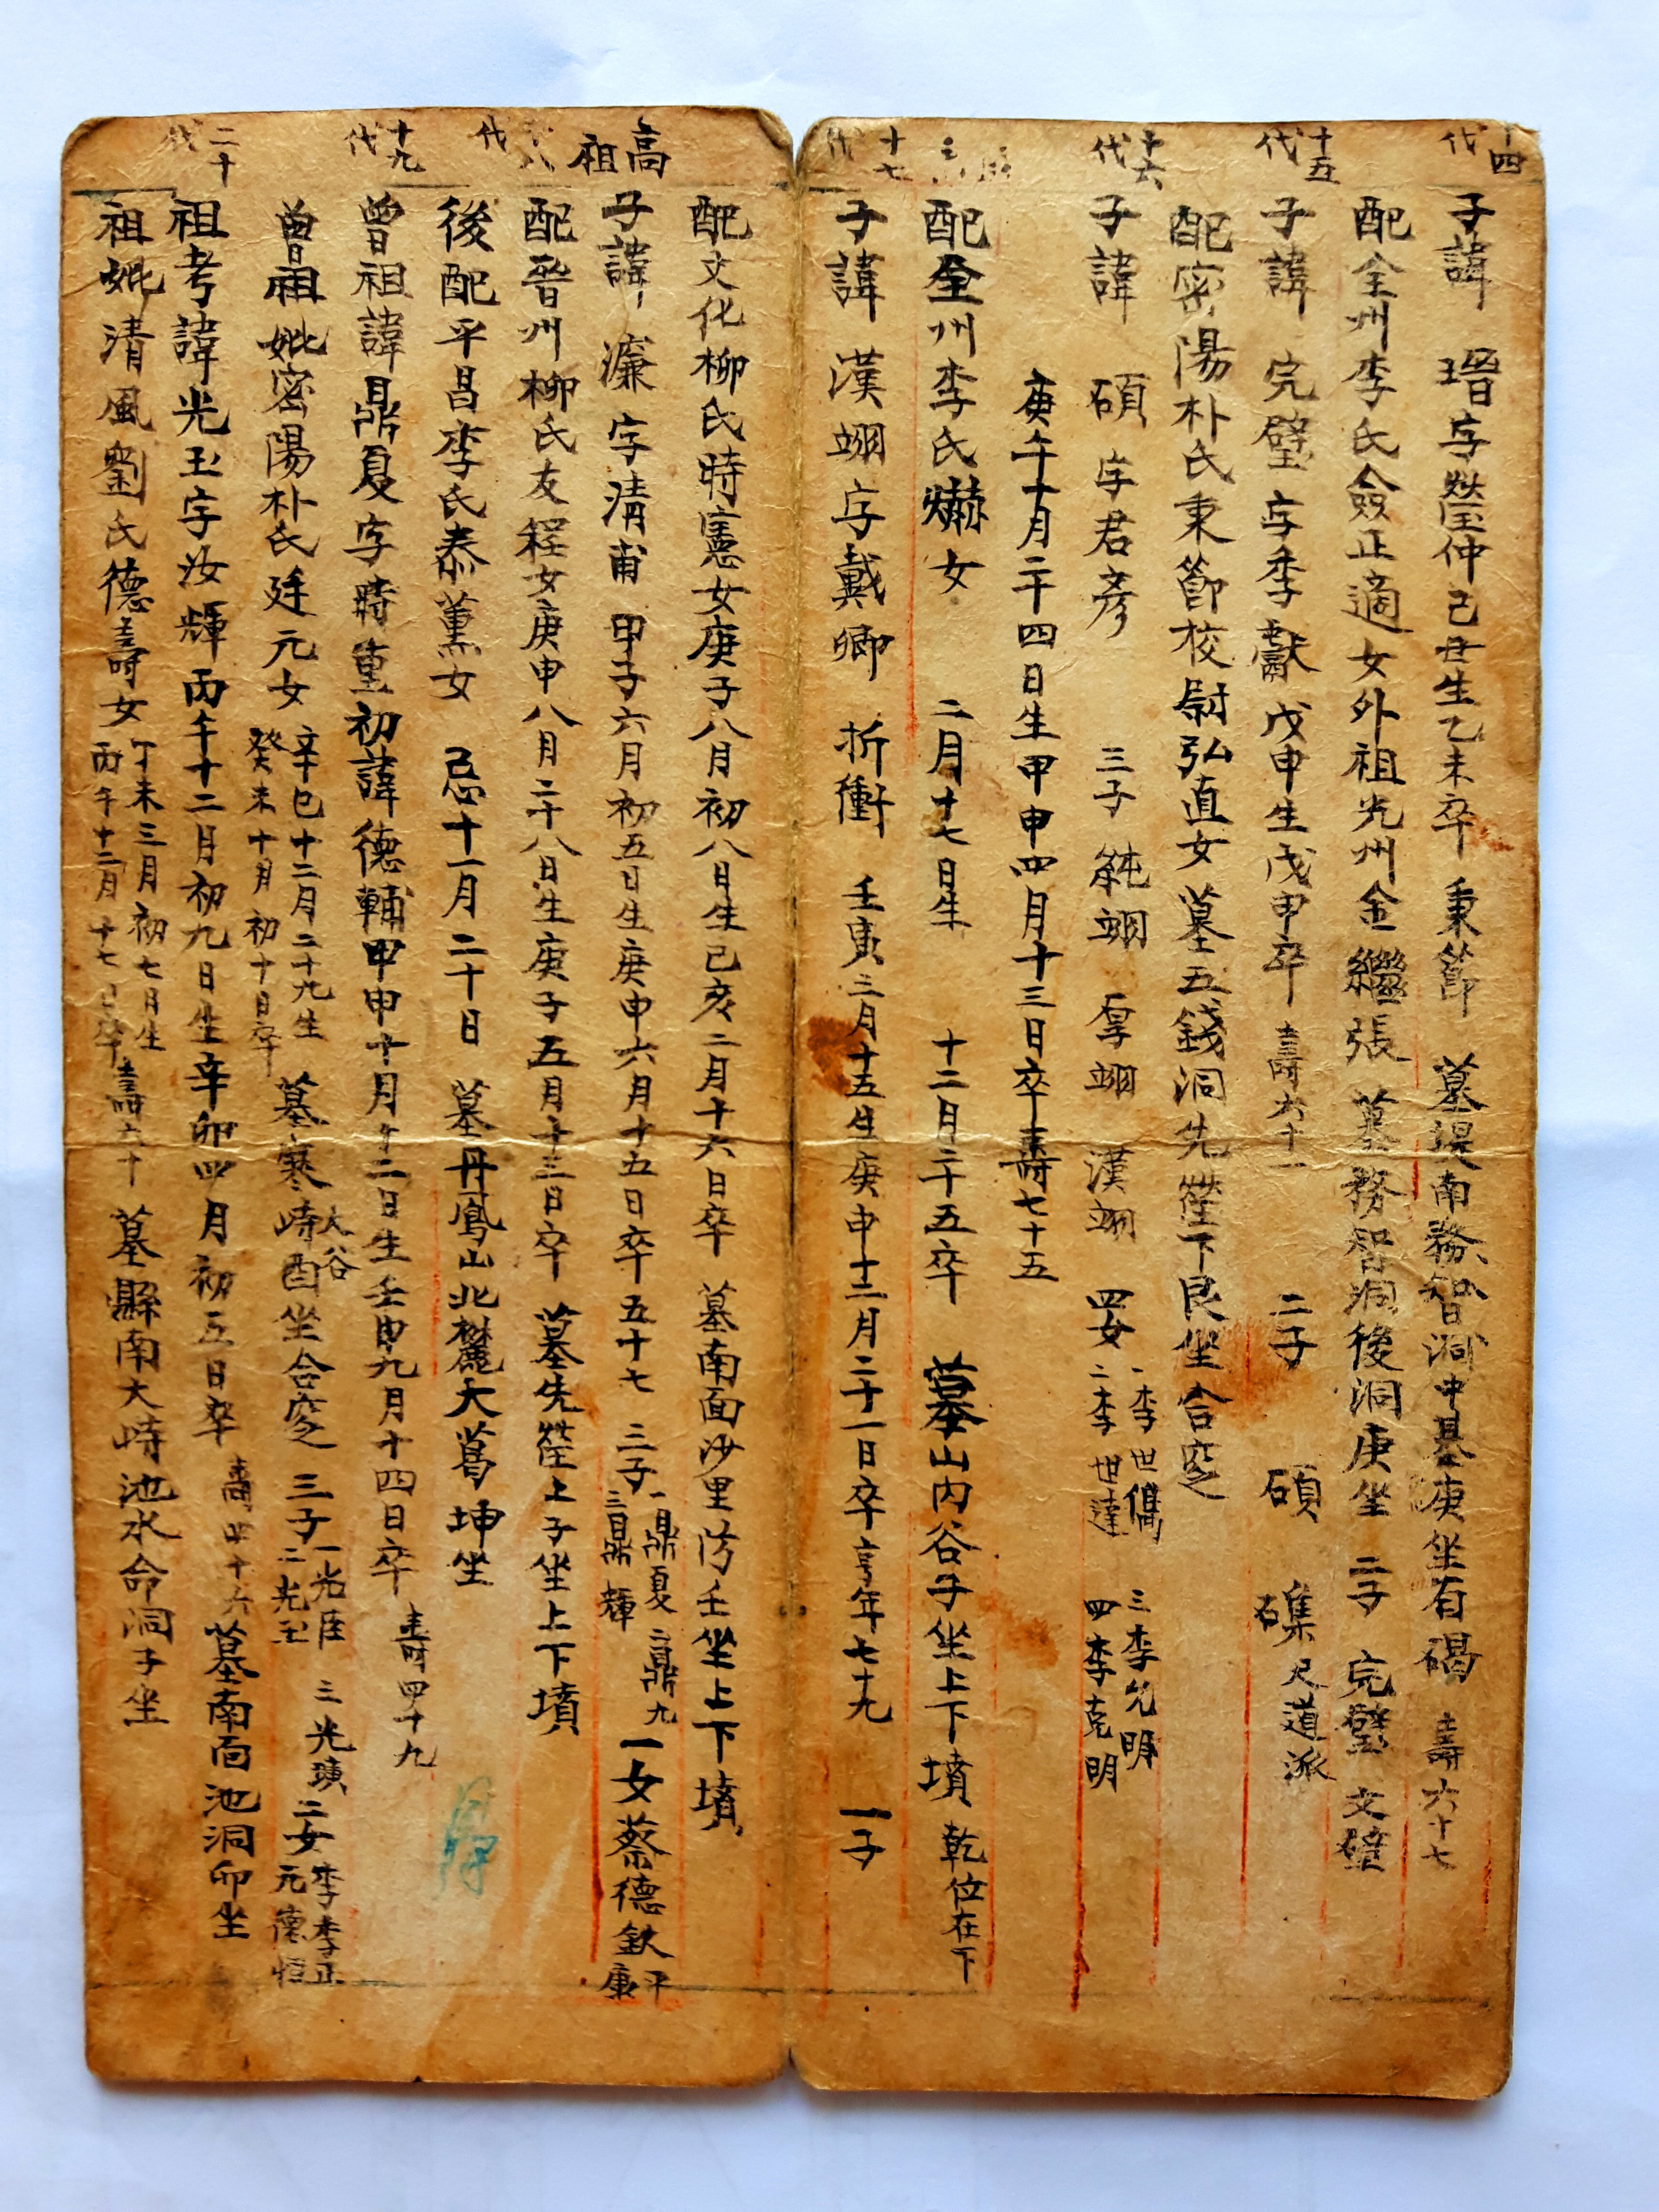 十四代
子諱 瑨字瑩仲己丑生乙未卒 秉節 墓堤南務智洞中基庚坐有碣 壽六十七
配全州李氏僉正適女外祖光州金繼張 墓務智洞後洞庚坐 二子 完璧 文璧
十五代
子諱 完璧 字季獻戊申生戊申卒 壽六十一 二子 碩 磼尺道派
配密陽朴氏秉節校尉弘直女墓五錢洞先塋下艮坐合窆
十六代
子諱 碩 字君彦 三子 純翊 厚翊 漢翊 四女 一李世儁 二李世達 三李允明 四李克明
庚午十月二十四日生甲申四月十三日卒壽七十五
配全州李氏爀女 二月十七日生 十二月二十五卒 墓山内谷子坐上下墳 乾位在下
十七代
子諱 漢翊 字戴卿 折衝 壬寅三月十五生庚申十二月二十一日卒享年七十九 一子
配文化柳氏時憲女庚子八月初八日生己亥二月十六日卒 墓南面沙里汸壬坐上下墳
高祖
子諱 濂 字清甫 甲子六月初五日生庚申六月十五日卒 五十七 三子 一鼎夏 二鼎九 三鼎輝 一女蔡德欽 平康
配晉州柳氏友程女庚申八月二十八日生庚子五月十三日卒 墓先塋上子坐上下墳
後配平昌李氏泰薰女 忌十一月二十日 墓丹鳳山北麓大葛坤坐
十九代
曾祖諱鼎夏字時重初諱德輔甲申十月十二日生壬申九月十四日卒 壽四十九
曾祖妣密陽朴氏廷元女 辛巳十二月二十九生 癸未十月初十日卒 墓寒峙大谷酉坐合窆 三子 一光臣 二光玉 三光璜 二女 李李正 元德恒
二十代
祖考諱光玉字汝輝丙午十二月初九日生辛卯四月初五日卒 壽四十六 墓南面池洞卯坐
祖妣清風劉氏德壽女 丁未三月初七日生 丙午十二月十七日卒 壽六十 墓縣南大峙池水命洞子坐